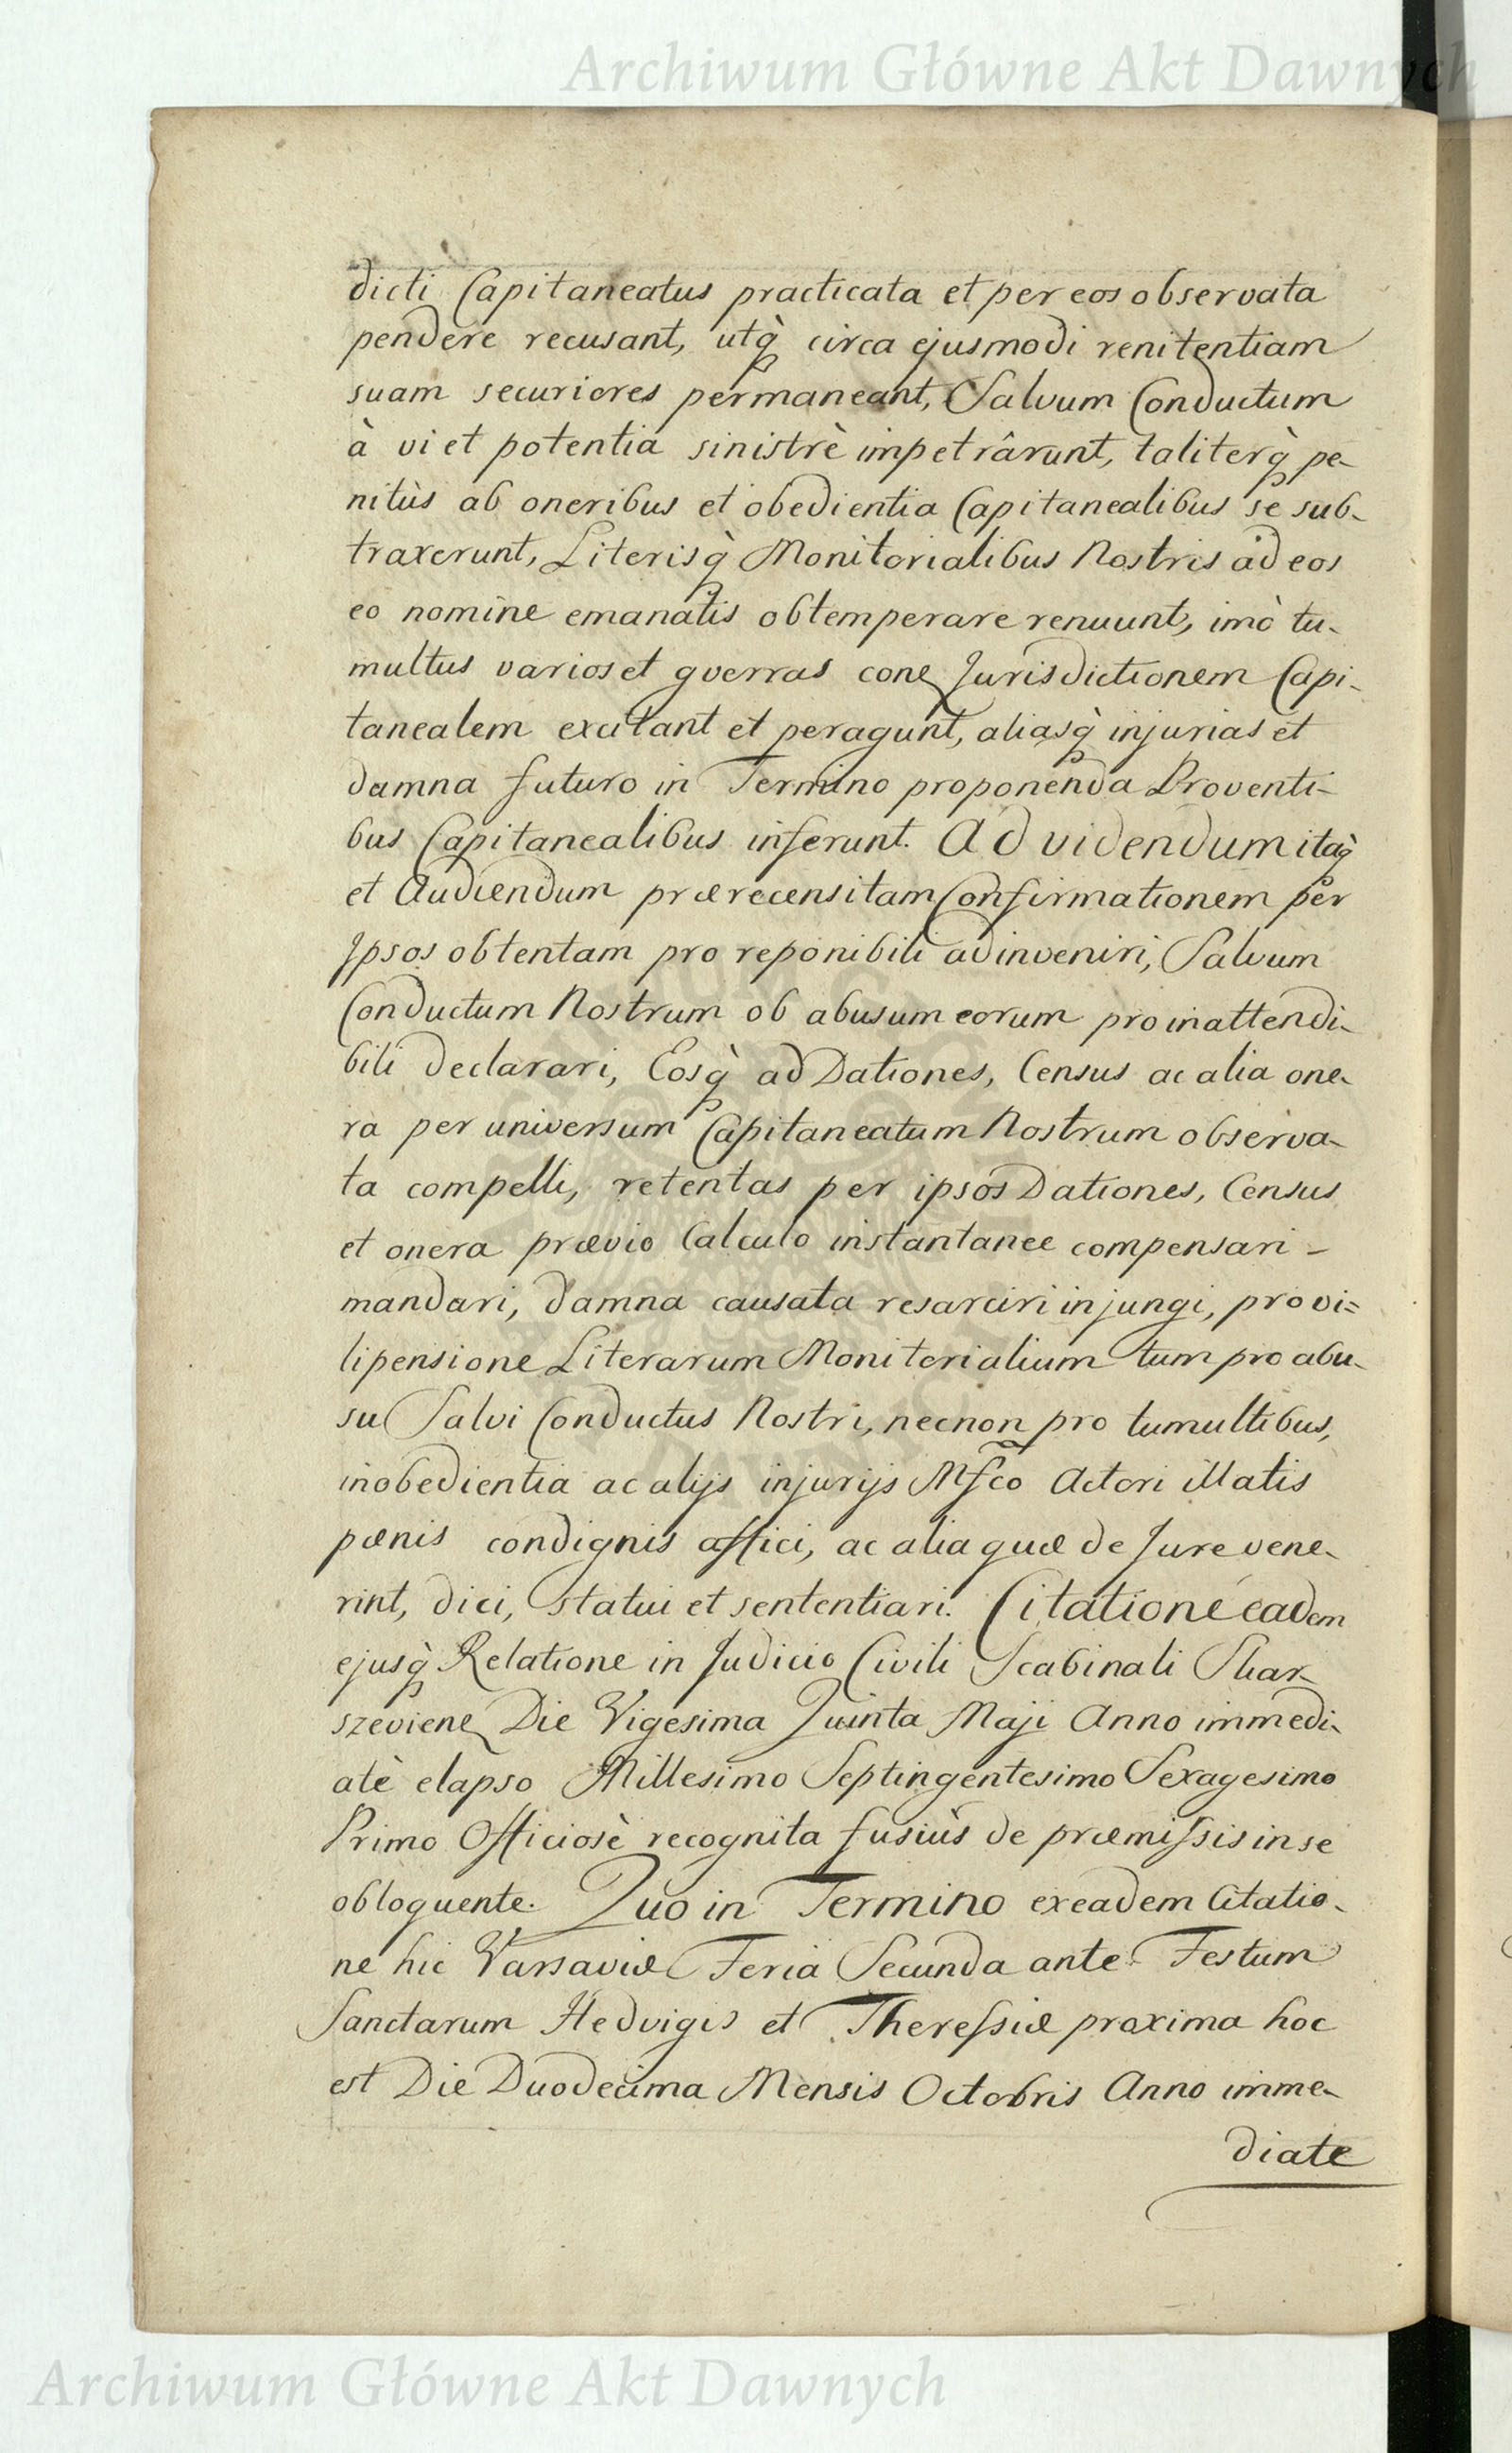 Archiwum Główne Akt Dawnych
dicti Capitaneatus practicata et per eos observata
pendere recusant, utq̀ circa ejusmodi renitentiam
suam securiores permaneant, Salvum Conductum
à vi et potentia sinistrè impetrârunt, taliterq̀ pe-
nitùs ab oneribus et obedientia Capitanealibus se sub-
traxerunt, Literisq̀ Monitorialibus Nostris ad eos
eo nomine emanatis obtemperare renuunt, imò tu-
multus varios et gverras conę Jurisdictionem Capi-
tanealem excitant et peragunt, aliasq̀ injurias et
damna futuro in Termino proponenda Proventi-
bus Capitanealibus inferunt. Ad videndum itaq̀
et Audiendum prærecensitam Confirmationem per
Ipsos obtentam pro reponibili adinveniri, Salvum
Conductum Nostrum ob abusum eorum pro inattendi-
bili declarari, Eosq̀ ad Dationes, Census ac alia one-
ra per universum Capitaneatum Nostrum observa-
ta compelli, retentas per ipsos Dationes, Census
et onera prævio Calculo instantanee compensari -
mandari, damna causata resarciri injungi, pro vi=
lipensione Literarum Monitorialium tum pro abu-
su Salvi Conductus Nostri, necnon pro tumultibus,
inobedientia ac alijs injurijs Mfco Actori illatis
pænis condignis affici, ac alia quæ de Jure vene-
rint, dici, statui et sententiari. Citatione eadem
ejusq̀ Relatione in Judicio Civili Scabinali Skar-
szevienę Die Vigesima Quinta Maji Anno immedi-
atè elapso Millesimo Septingentesimo Sexagesimo
Primo Officiosè recognita fusiùs de præmissis in se
obloquente. Quo in Termino ex eadem Citatio-
ne hic Varsaviæ Feria Secunda ante Festum
Sanctarum Hedvigis et Theressiæ proxima hoc
est Die Duodecima Mensis Octobris Anno imme-
diate
Archiwum Główne Akt Dawnych